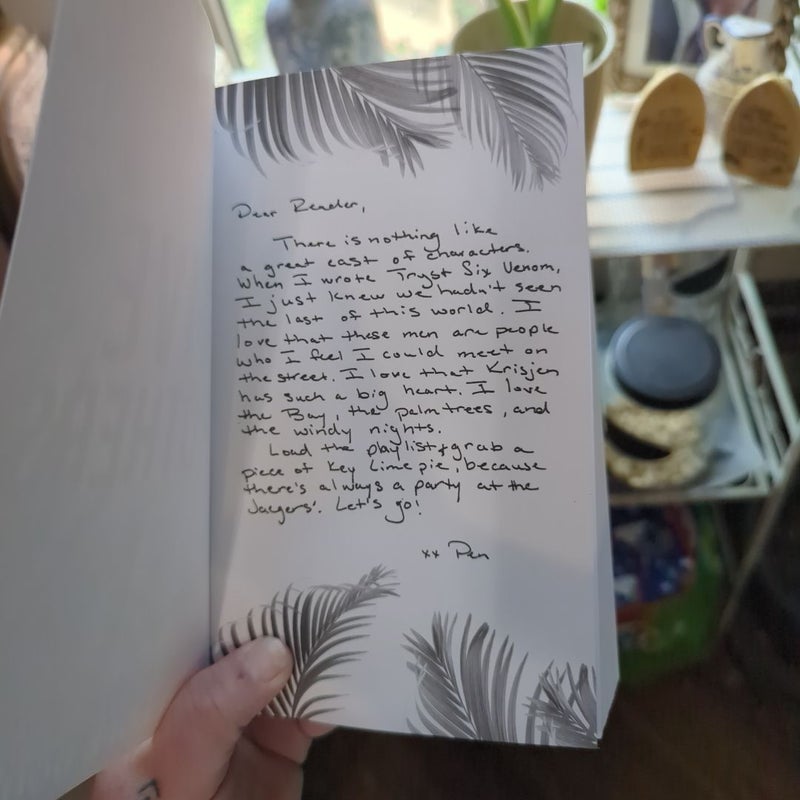 Dear Reader,
There is nothing like
a great cast of characters.
When I wrote Tryst Six Venom,
I just knew we hadn't seen
the last of this world. I
love that these men are people
who I feel I could meet on
the street. I love that Krisjen
has such a big heart. I love
the Bay, the palm trees, and
the windy nights.
Load the playlist & grab a
piece of key lime pie, because
there's always a party at the
Jaegers'. Let's go!
xx Pen